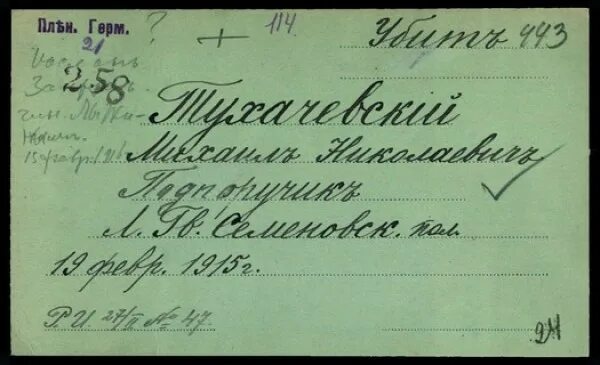 Плѣн. Герм.
21
?
+
114
Убитъ 443
258
Тухачевскій
Михаилъ Николаевичъ
15 февр. 1916
Подпоручикъ
Л. Гв. Семеновск. пол.
19 февр. 1915 г.
Р. И. 27/II № 47.